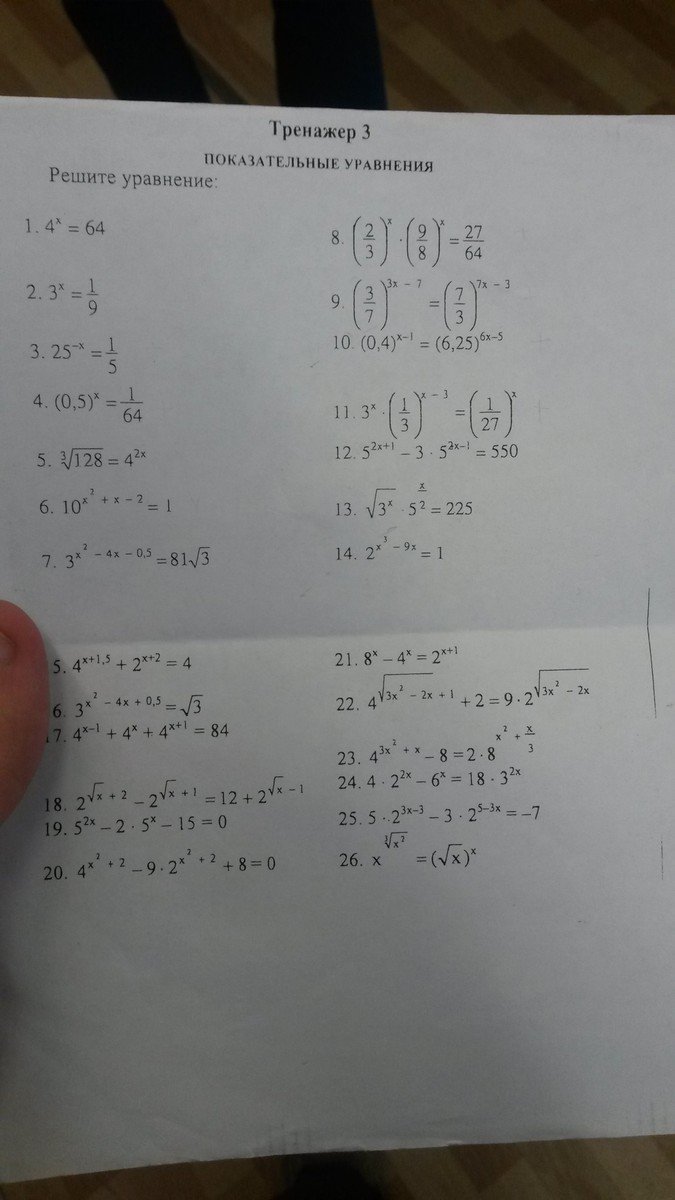 Тренажер 3
ПОКАЗАТЕЛЬНЫЕ УРАВНЕНИЯ
Решите уравнение:
1. 4^x = 64
2. 3^x = 1/9
3. 25^(-x) = 1/5
4. (0,5)^x = 1/64
5. ∛128 = 4^(2x)
6. 10^(x^2 + x - 2) = 1
7. 3^(x^2 - 4x - 0,5) = 81√3
8. (2/3)^x · (9/8)^x = 27/64
9. (3/7)^(3x - 7) = (7/3)^(7x - 3)
10. (0,4)^(x-1) = (6,25)^(6x-5)
11. 3^x · (1/3)^(x - 3) = (1/27)^x
12. 5^(2x+1) - 3 · 5^(2x-1) = 550
13. √(3^x) · 5^(x/2) = 225
14. 2^(x^3 - 9x) = 1
5. 4^(x+1,5) + 2^(x+2) = 4
6. 3^(x^2 - 4x + 0,5) = √3
17. 4^(x-1) + 4^x + 4^(x+1) = 84
18. 2^(√x + 2) - 2^(√x + 1) = 12 + 2^(√x - 1)
19. 5^(2x) - 2 · 5^x - 15 = 0
20. 4^(x^2 + 2) - 9 · 2^(x^2 + 2) + 8 = 0
21. 8^x - 4^x = 2^(x+1)
22. 4^(√(3x^2 - 2x) + 1) + 2 = 9 · 2^(√(3x^2 - 2x))
23. 4^(3x^2 + x) - 8 = 2 · 8^(x^2 + x/3)
24. 4 · 2^(2x) - 6^x = 18 · 3^(2x)
25. 5 · 2^(3x-3) - 3 · 2^(5-3x) = -7
26. x^(∛(x^2)) = (√x)^x